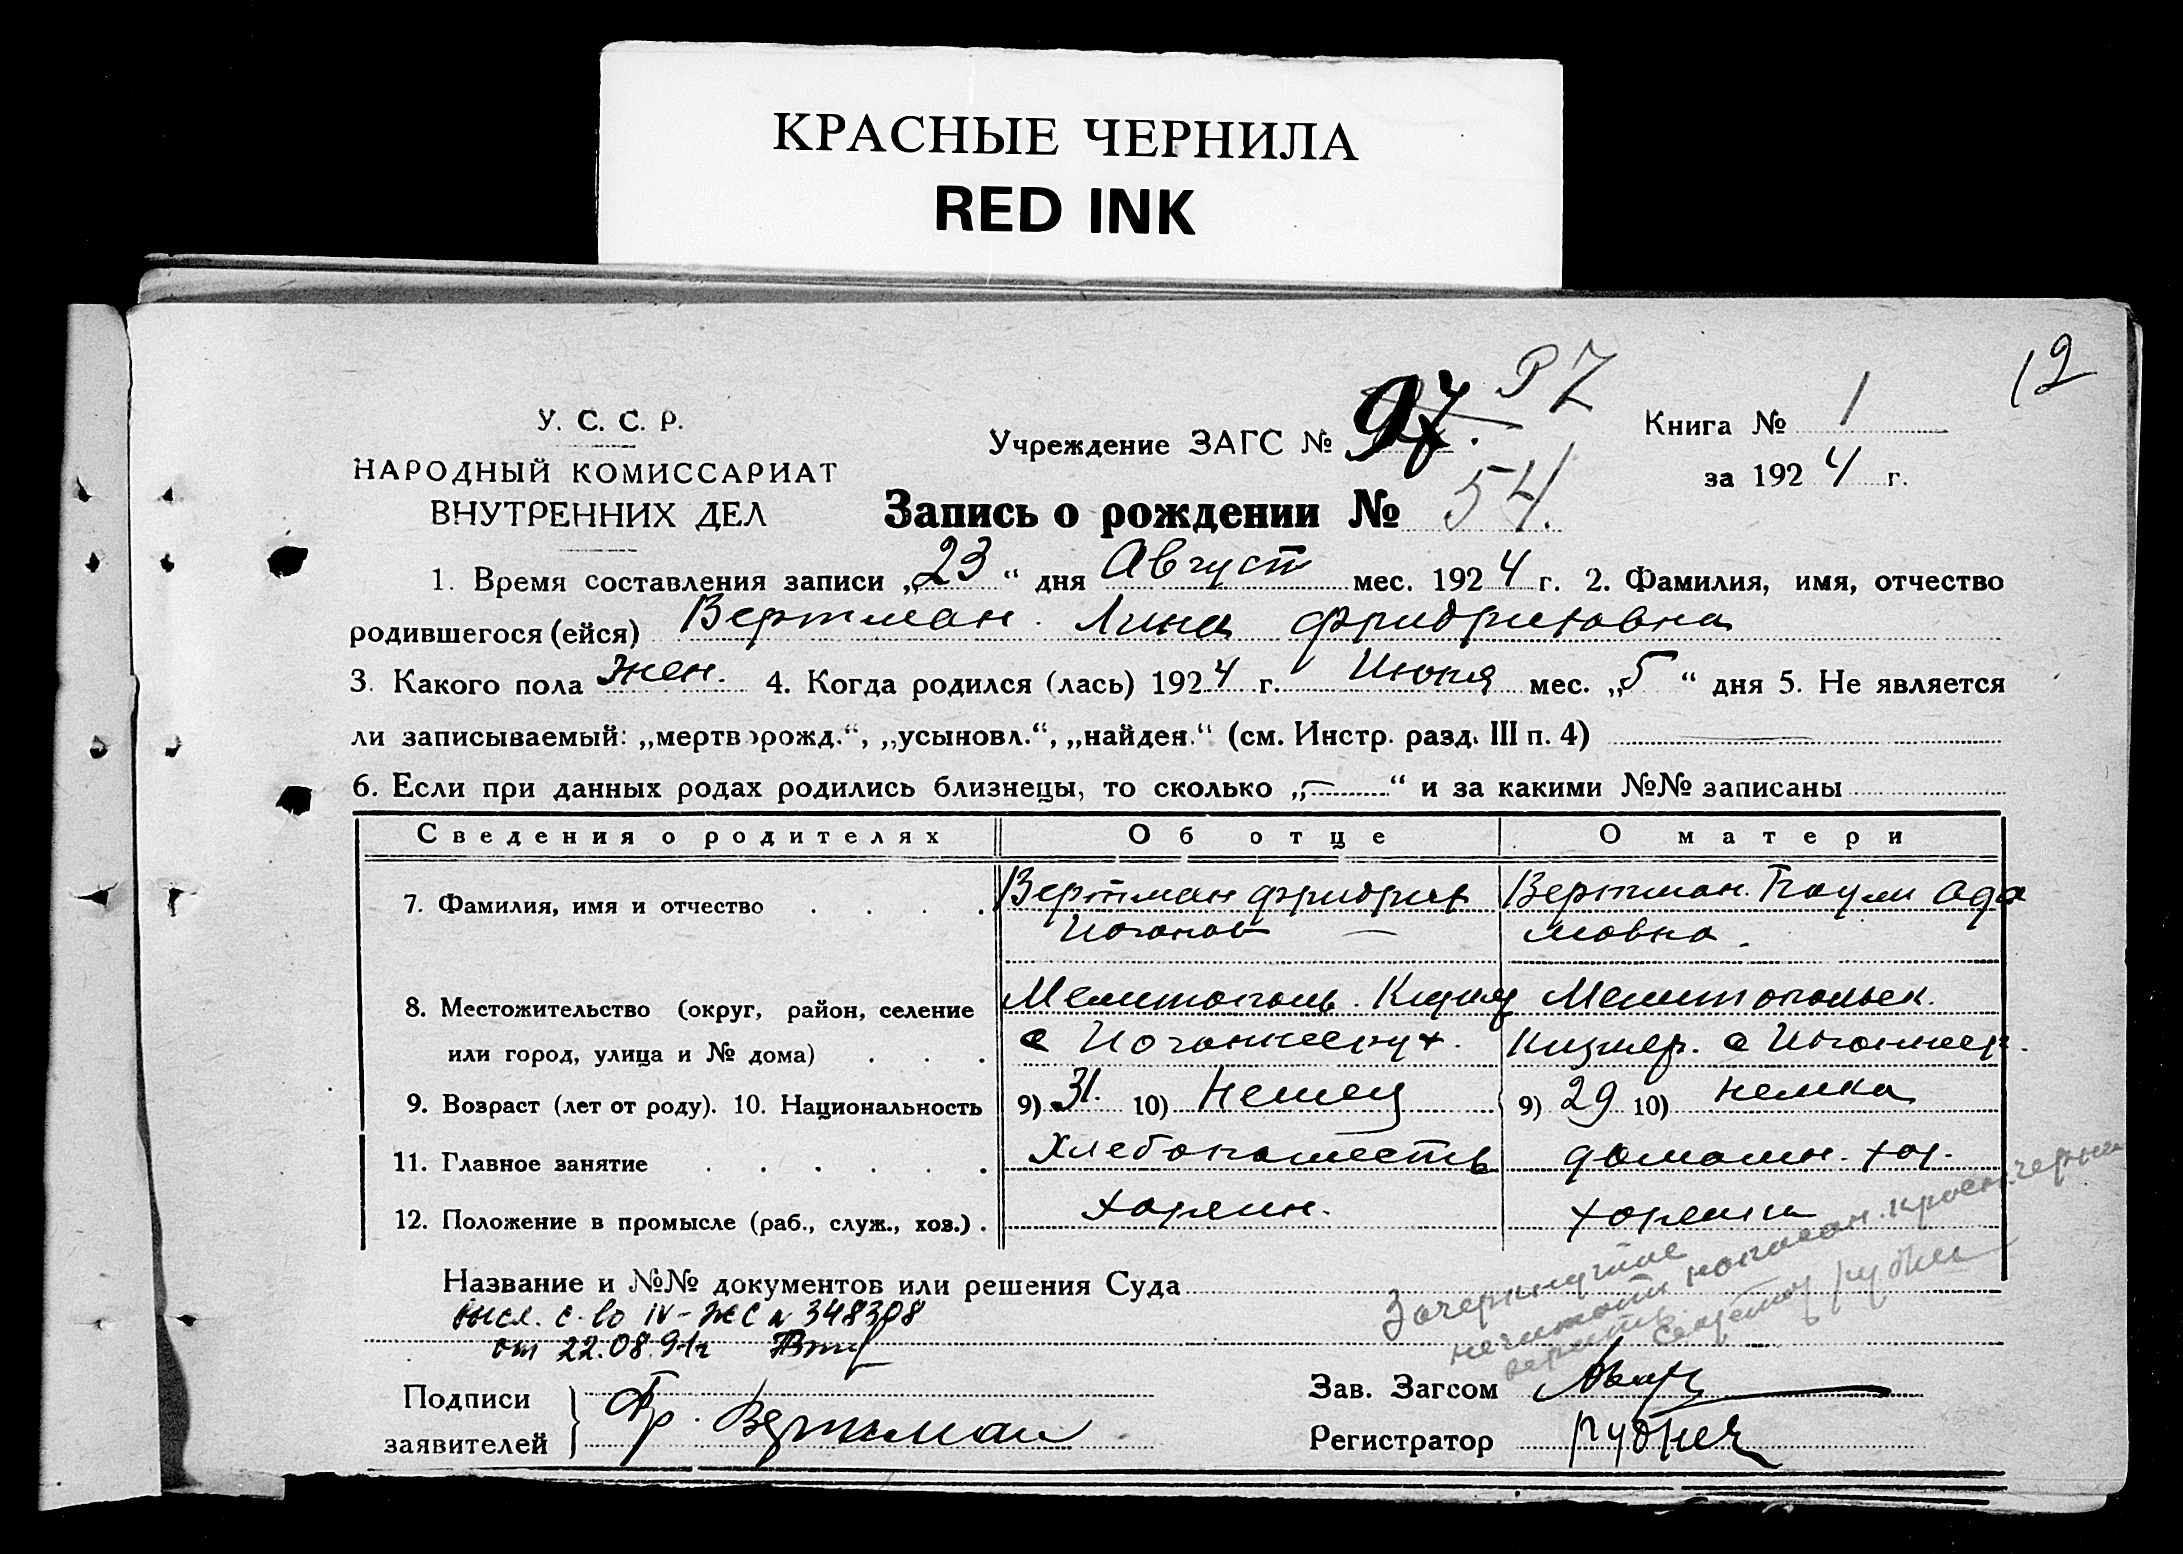 КРАСНЫЕ ЧЕРНИЛА
RED INK
12
У. С. С. Р.
НАРОДНЫЙ КОМИССАРИАТ
ВНУТРЕННИХ ДЕЛ
Учреждение ЗАГС № 97.
Книга № 1
за 1924 г.
Запись о рождении № 54.
1. Время составления записи „23“ дня Август мес. 1924 г. 2. Фамилия, имя, отчество
родившегося (ейся) Вертман Лина Фридриховна
3. Какого пола жен. 4. Когда родился (лась) 1924 г. Июня мес. „5“ дня 5. Не является
ли записываемый: „мертворожд.“, „усыновл.“, „найден.“ (см. Инстр. разд. III п. 4)
6. Если при данных родах родились близнецы, то сколько „—“ и за какими №№ записаны
Сведения о родителях Об отце О матери
7. Фамилия, имя и отчество . . . . Вертман Фридрих Вертман Паули Ада
Иоганов мовна.
8. Местожительство (округ, район, селение Мелитополь. Мелитопольск.
или город, улица и № дома) . . . с Иоганнесру х. Кизияр. с Иоганнеср.
9. Возраст (лет от роду). 10. Национальность 9) 31. 10) Немец 9) 29 10) немка
11. Главное занятие . . . . . . Хлебопашеств домашн. хоз.
12. Положение в промысле (раб., служ., хоз.) . хозяин. хозяйка
Зачеркнутое
красн. черни
Название и №№ документов или решения Суда
высл. с-во IV-ЖС № 348308
от 22.08.91г
Подписи
заявителей Фр. Вертман
Зав. Загсом
Регистратор